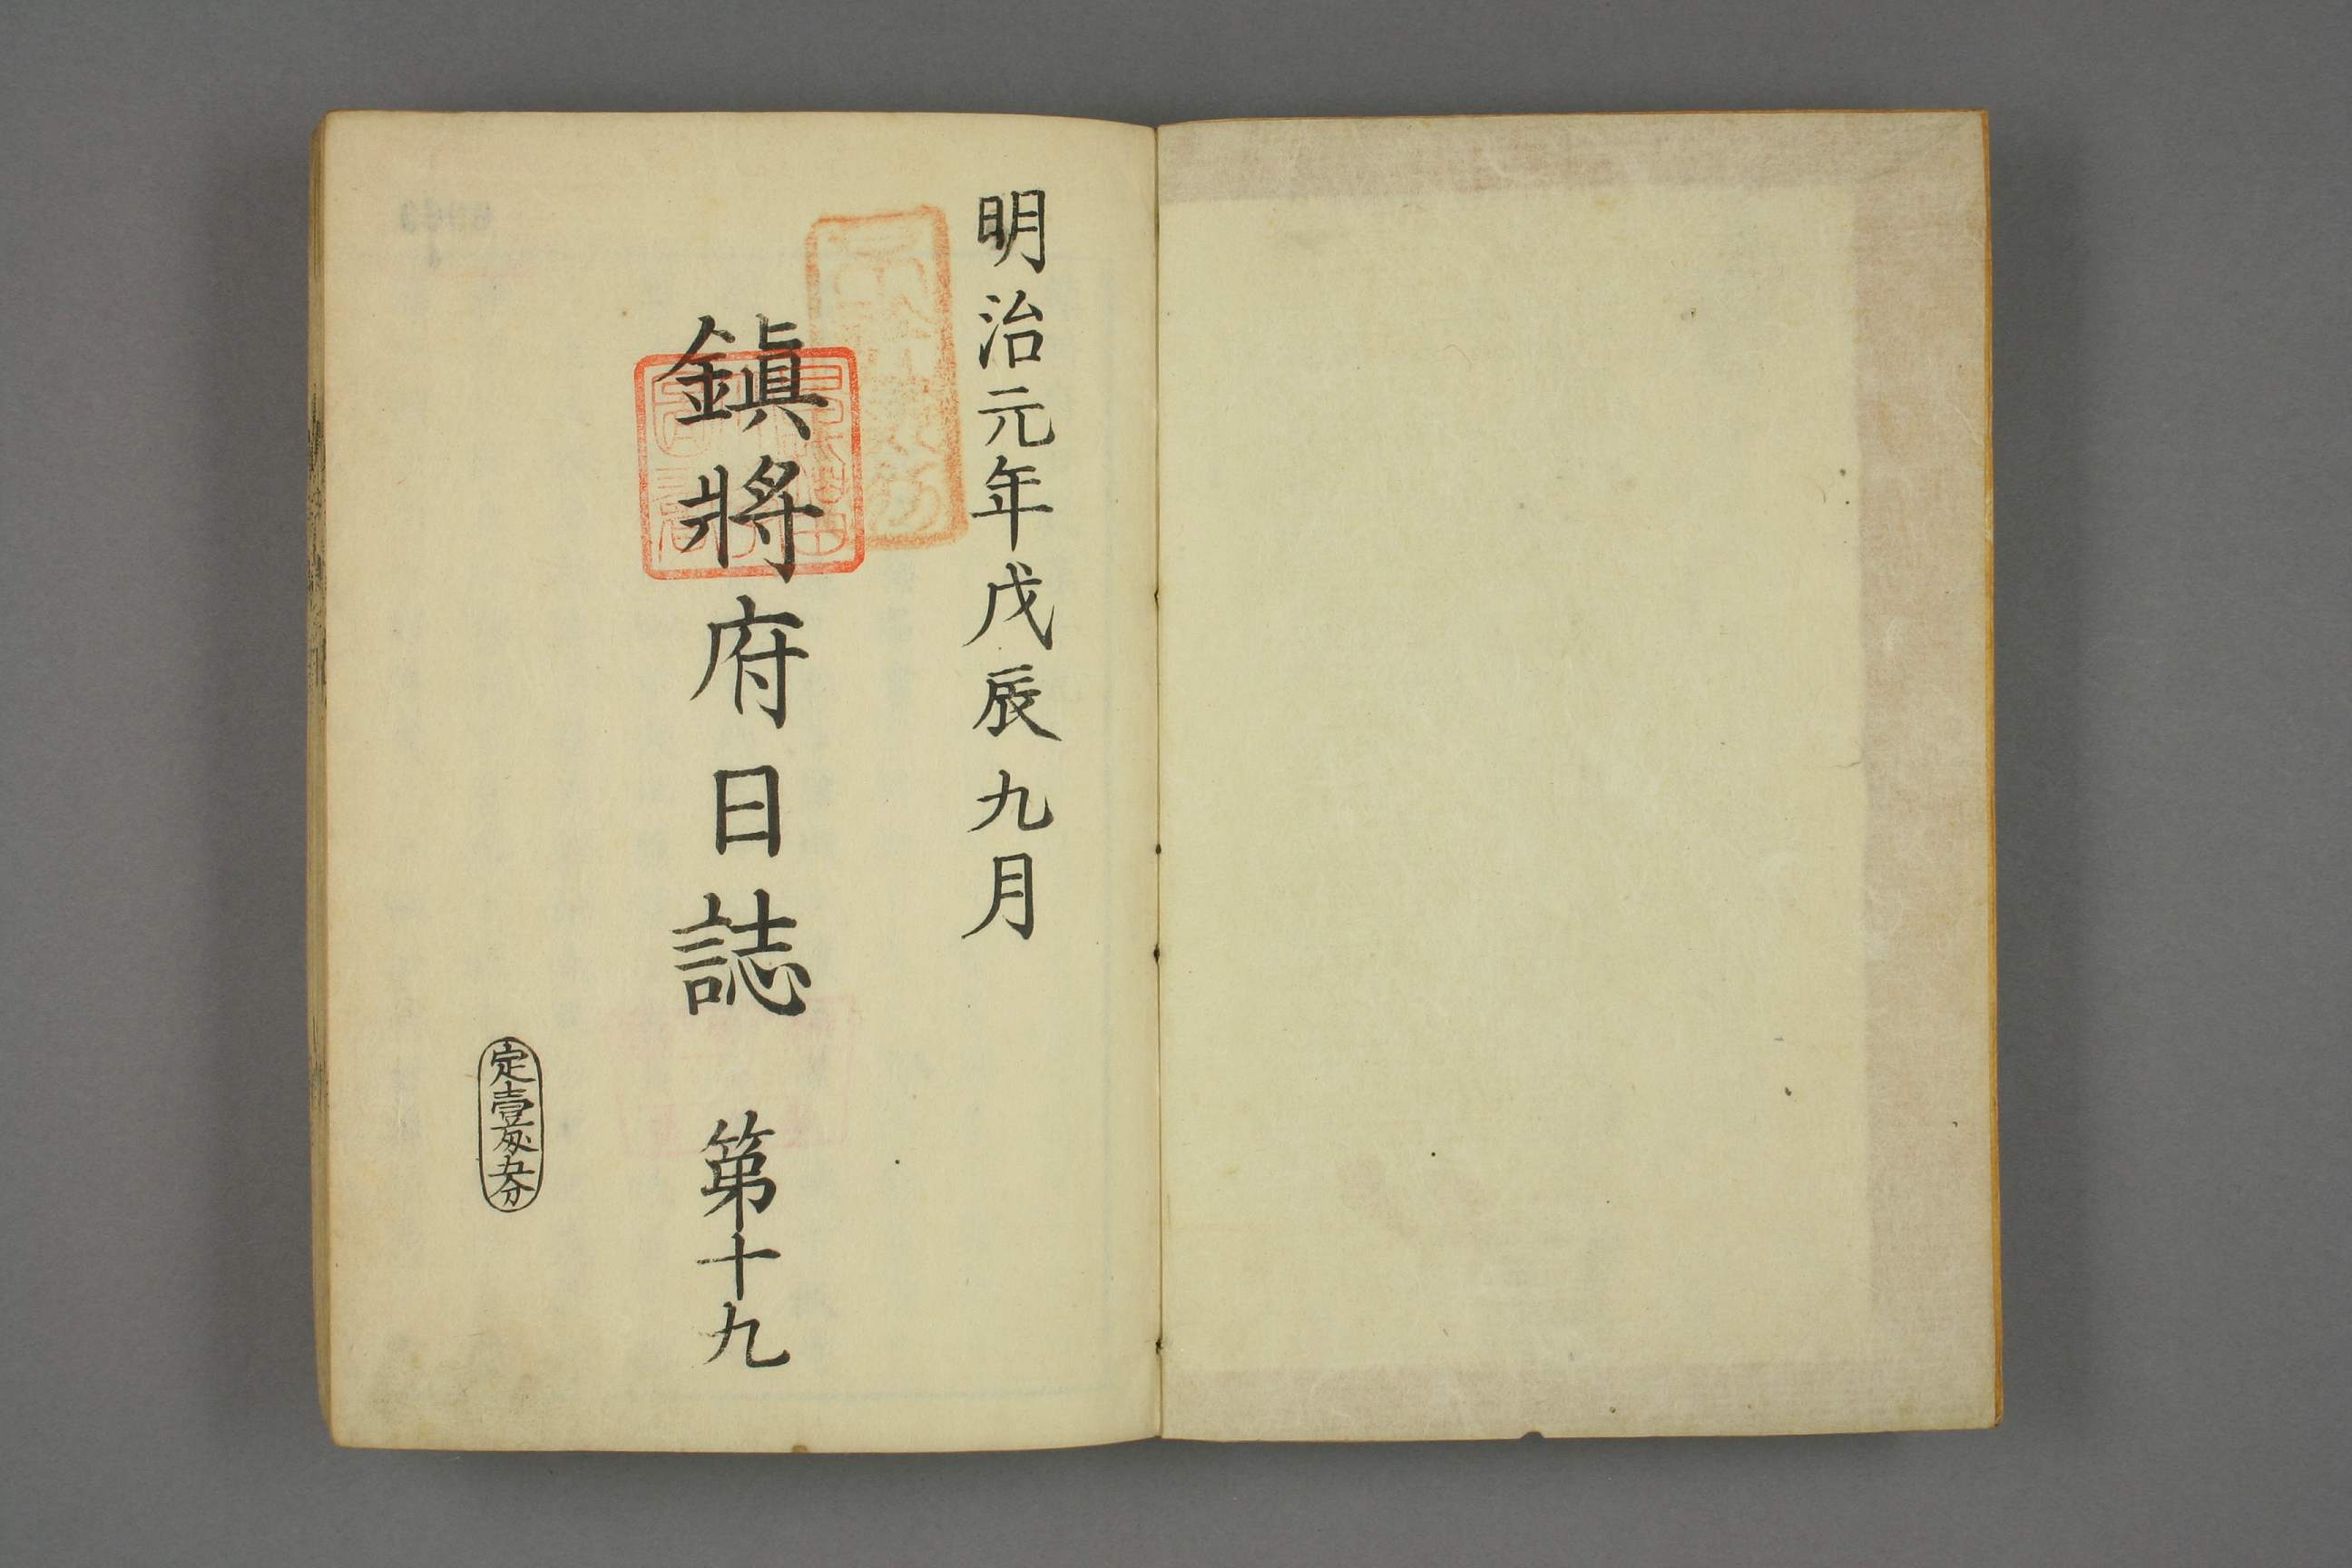 明治元年戊辰九月
鎭將府日誌 第十九
定壹匁五分